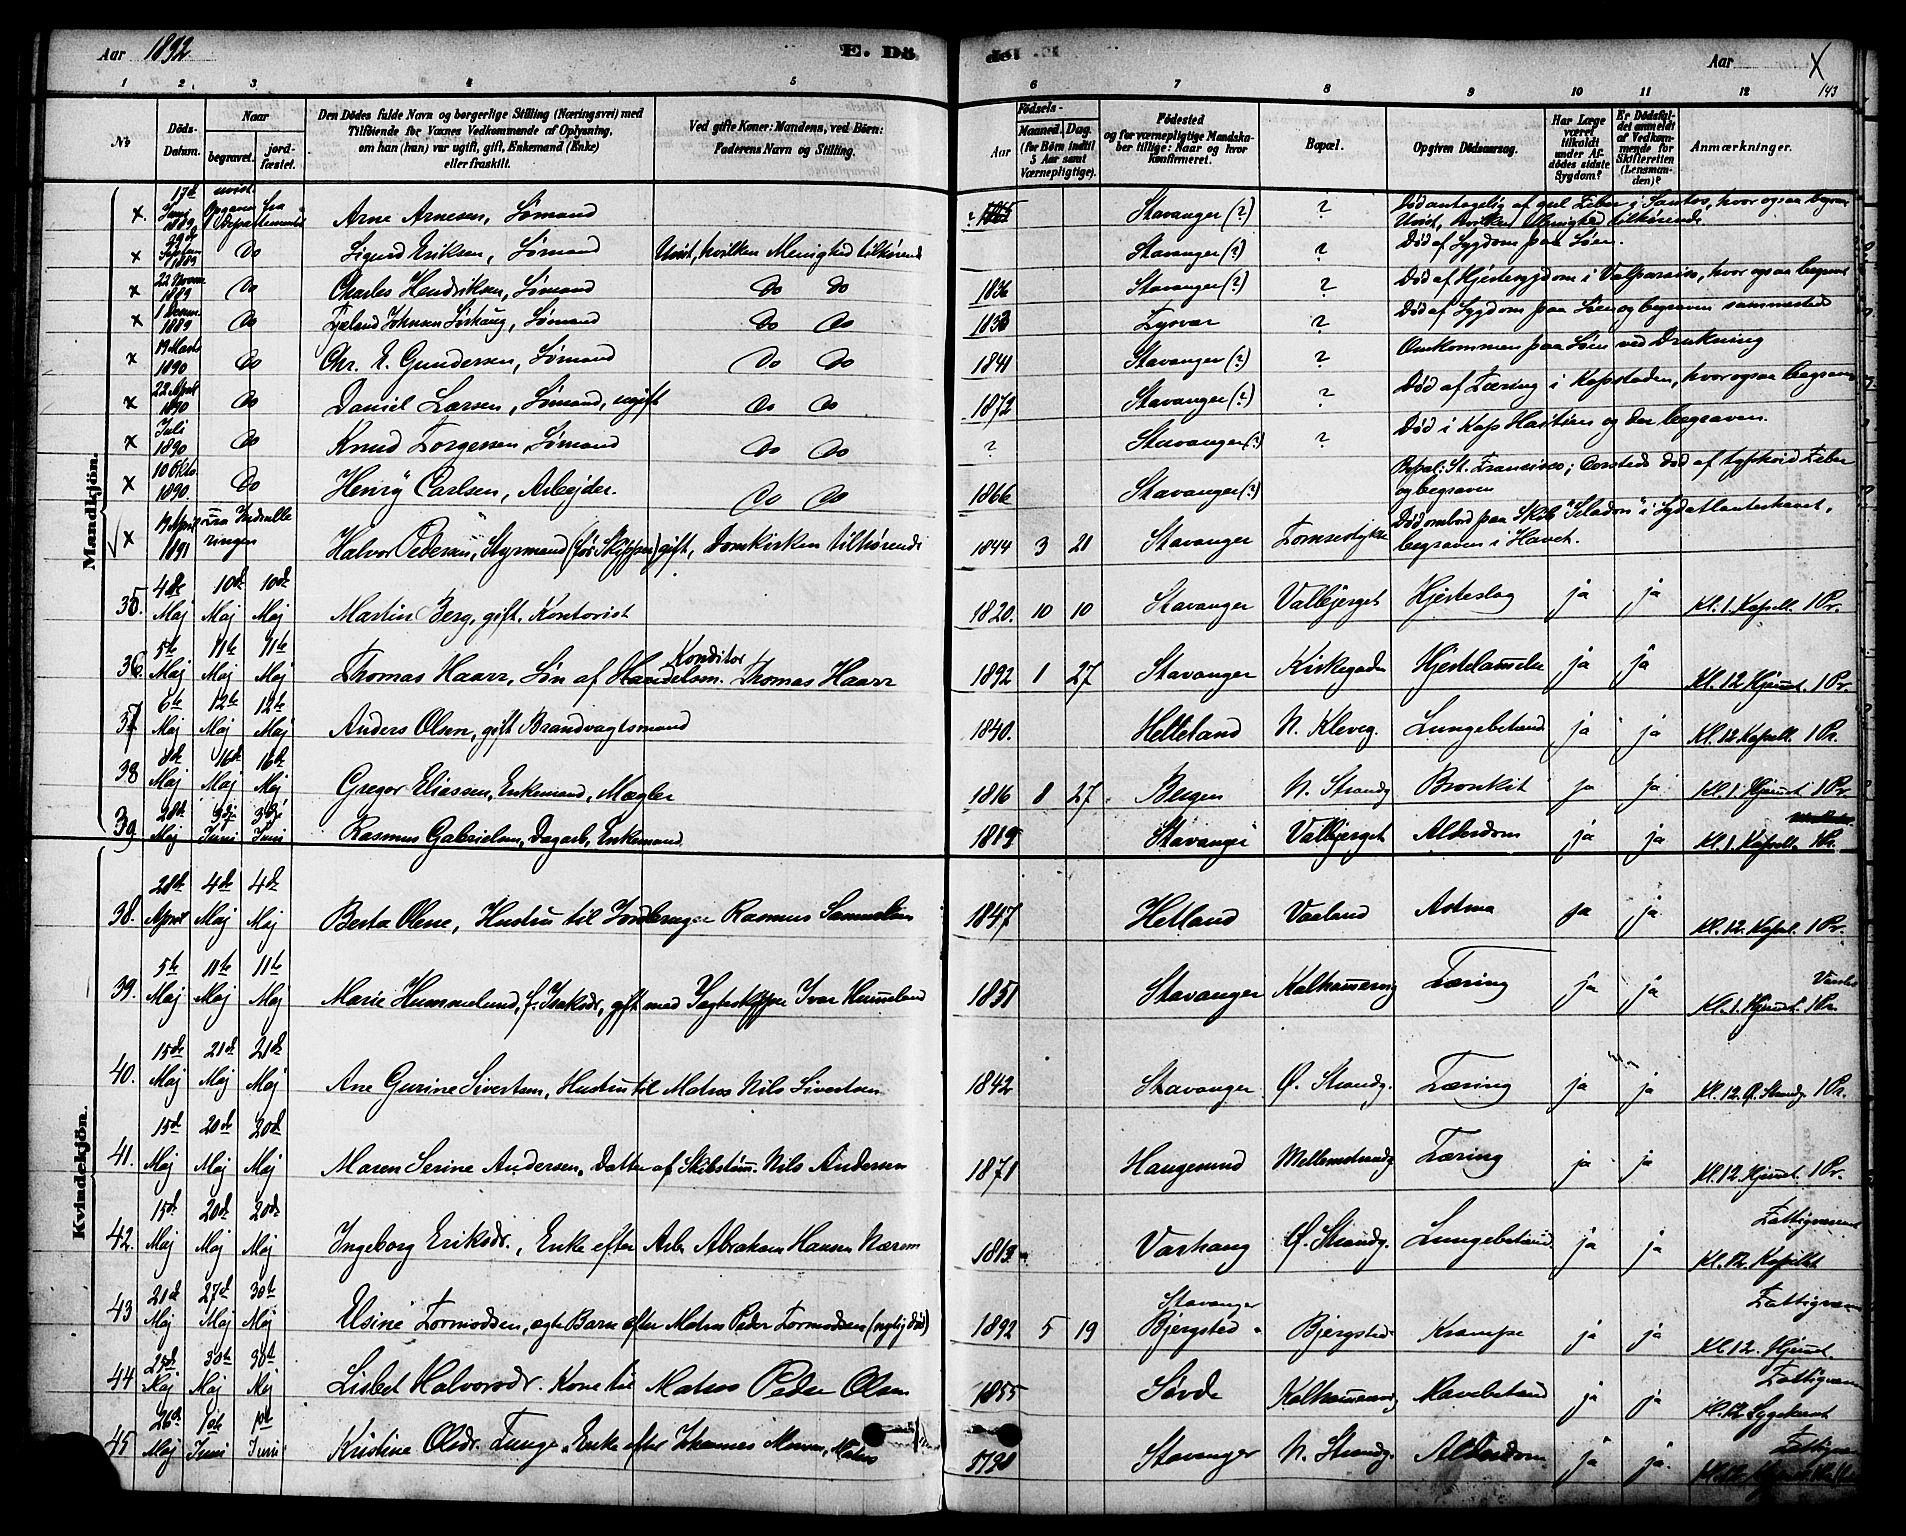 Aar 1892. E. Dö
de. Aar 143
1 2. 3. 4 5 6 7 8 9 10 11 12
No
Döds-Datum.
Naar
begravet. jordfæstet.
Den Dödes fulde Navn og borgerlige Stilling (Næringsvei) med
Tilföiende for Voxnes Vedkommende af Oplysning,
om han (hun) var ugift, gift, Enkemand (Enke)
eller fraskilt.
Ved gifte Koner: Mandens, ved Börn:
Faderens Navn og Stilling.
Födsels-
Aar Maaned. Dag.
(for Börn indtil 5 Aar samt Værnepligtige).
Födested
og for værnepligtige Mandskaber tillige: Naar og hvor konfirmeret.
Bopæl.
Opgiven Dödsaarsag.
Har Læge været tilkaldt under Afdödes sidste Sygdom?
Er Dödsfaldet anmeldt af Vedkommende for Skifteretten (Lensmanden)?
Anmærkninger.
Mandkjön.
x. 17de Juni 1889 Arne Arnesen, Sømand Stavanger (?) ? Død antagelig af gul Feber i Santos, hvor ogsaa begr.
Uvist, hvilken Menighed tilhørende
x 1889 Do Sigurd Eriksen, Sømand Uvist, hvilken Menighed tilhørende Stavanger (?) ? Død af Sygdom paa Søen.
x 22 Novem. 1889 Do Charles Hendriksen, Sømand Do Do 1836 Stavanger (?) ? Død af Hjertesygdom i Valparaiso, hvor ogsaa begravet
x 1 Decem. 1889 Do Sømand Do Do 1833 Tysvær ? Død af Sygdom paa Søen og begraven sammesteds
x 19 Marts 1890 Do Chr. E. Gundersen, Sømand Do Do 1841 Stavanger (?) ? Omkommen paa Søen ved Drukning
x 22 April 1890 Do Daniel Larsen, Sømand, ugift Do Do 1872 Stavanger (?) ? Død af Tæring i Kapstaden, hvor ogsaa begraven
x Juli 1890 Do Knud Torgersen, Sømand Do Do ? Stavanger (?) ? Død i Kap Haitien og der begraven.
x 10 Okto. 1890. Do Henry Carlsen, Arbejder. Do Do 1866 Stavanger (?) Bopæl: St. Francisco; Død af typhoid Feber
og begraven
x 19 April 1891 Halvor Pedersen, Styrmand (før Skipper) gift, Domkirken tilhørende 1844 3 21 Stavanger Død ombord paa Skib "Eladon" i Sydatlanterhavet,
begraven i Havet.
35. 4de Maj 10de Maj 10de Maj Martin Berg, gift. Kontorist 1820. 10 10 Stavanger Valbjerget Hjerteslag ja ja Kl. 1. Kapell. 1 Pr.
36. 5te Maj 11te Maj 11te Maj Thomas Haarr, Søn af Handelsm. Konditor Thomas Haarr 1892 1 27 Stavanger Kirkegaden ja ja Kl. 12 Hjemmet. 1 Pr.
37 6te Maj 12te Maj 12te Maj Anders Olsen, gift Brandvagtsmand 1840. Helleland N. Kleveg. Lungebetænd. ja ja Kl. 12. Kapell. 1 Pr.
38 8de Maj 16de Maj 16de Maj Gregor Eliassen, Enkemand, Mægler 1816 8 27 Bergen N. Strandg Bronkit ja ja Kl. 1. Hjemmet 1 Pr
39 28de Maj 3dje Juni 3dje Juni Rasmus Gabrielsen, Dagarb., Enkemand. 1819 Stavanger Valbjerget Alderdom ja ja Kl. 1. Kapelle 1 Pr.
Kvindekjön.
38. 28de April 4de Maj 4de Maj Berta Olene, Hustru til Jordbruger Rasmus Samuelsen 1847 Hetland Vaaland Astma ja ja. Kl. 12. Kapel. 1 Pr.
39. 5te Maj 11te Maj 11te Maj Marie Hummeland, f. Isaksdr, gift med Jagteskipper Ivar Hummeland 1851 Stavanger Kalhammerveg Tæring ja ja Kl. 1. Hjemmet. 1 Pr.
40. 15de Maj 21de Maj 21de Maj Ane Gurine Sivertsen, Hustru til Matros Nils Sivertsen 1842 Stavanger. Ø. Strandg. Tæring ja ja Kl. 12. Ø. Strandg. 1 Pr.
41. 15de Maj 20de Maj 20de Maj Maren Serine Andersen, Datter af Skibstømm. Nils Andersen 1871 Haugesund Mellemstrandg Tæring ja ja Kl. 12. Hjemmet. 1 Pr.
42. 15de Maj 20de Maj 20de Maj Ingeborg Eriksdr., Enke efter Arb. Abraham Hansen Nærem 1819 Varhaug Ø. Strandg. Lungebetænd. ja ja Fattigvæsenet
Kl. 12. Kapellet
43 21de Maj 27de Maj 30te Maj Elsine Tormodsen, ægte Barn efter Matros Peder Tormodsen (nylig død) 1892 5 19 Stavanger
Bjergsted Bjergsted Krampe ja ja Kl. 12. Hjemmet.
44 25de Maj 30te Maj 30te Maj Lisbet Halvorsdr. Kone til Matros Peder Olsen 1855 Søvde Mavebetænd ja ja Kl. 12. Sygehuset
45 26de Maj 1ste Juni 1ste Juni Kristine Olsdr. Tunge, Enke efter Johannes Monsen, Matros Stavanger N. Strandg. Alderdom ja ja.